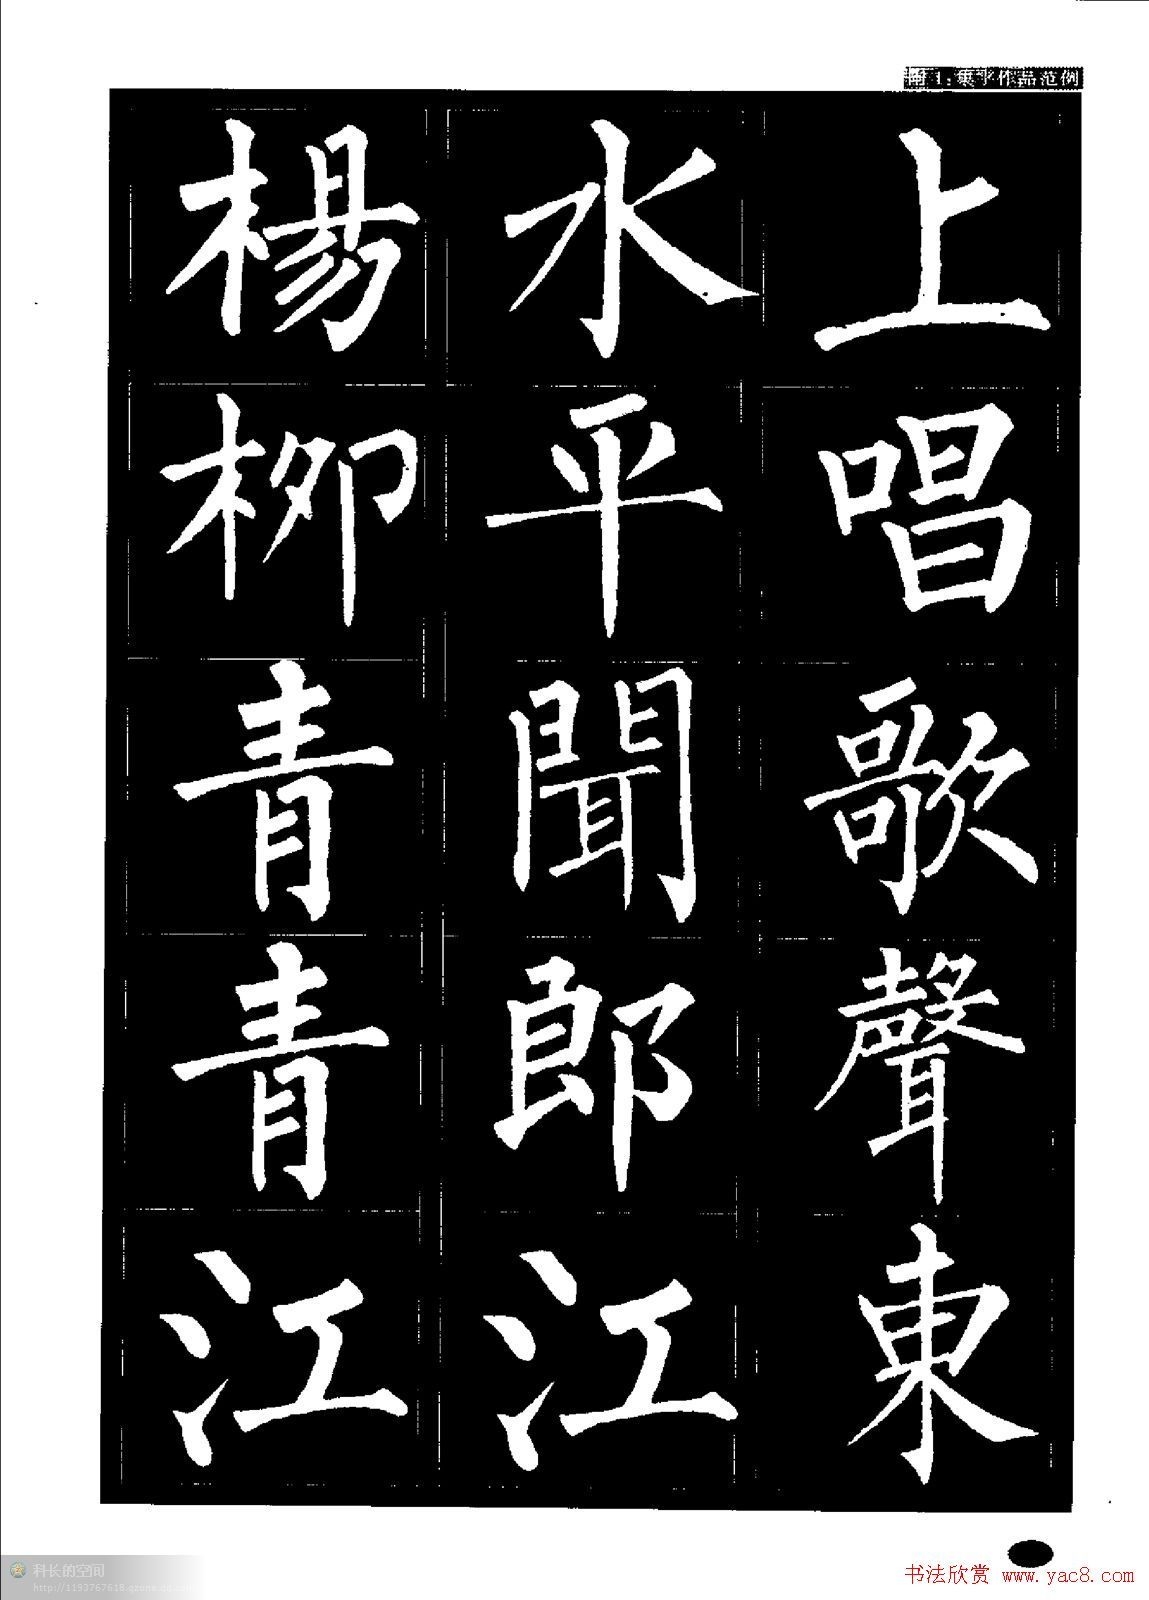 附1:集字作品范例
楊柳青青江
水平聞郎江
上唱歌聲東
科长的空间
http://1193767618.qzone.qq.com
书法欣赏 www.yac8.com